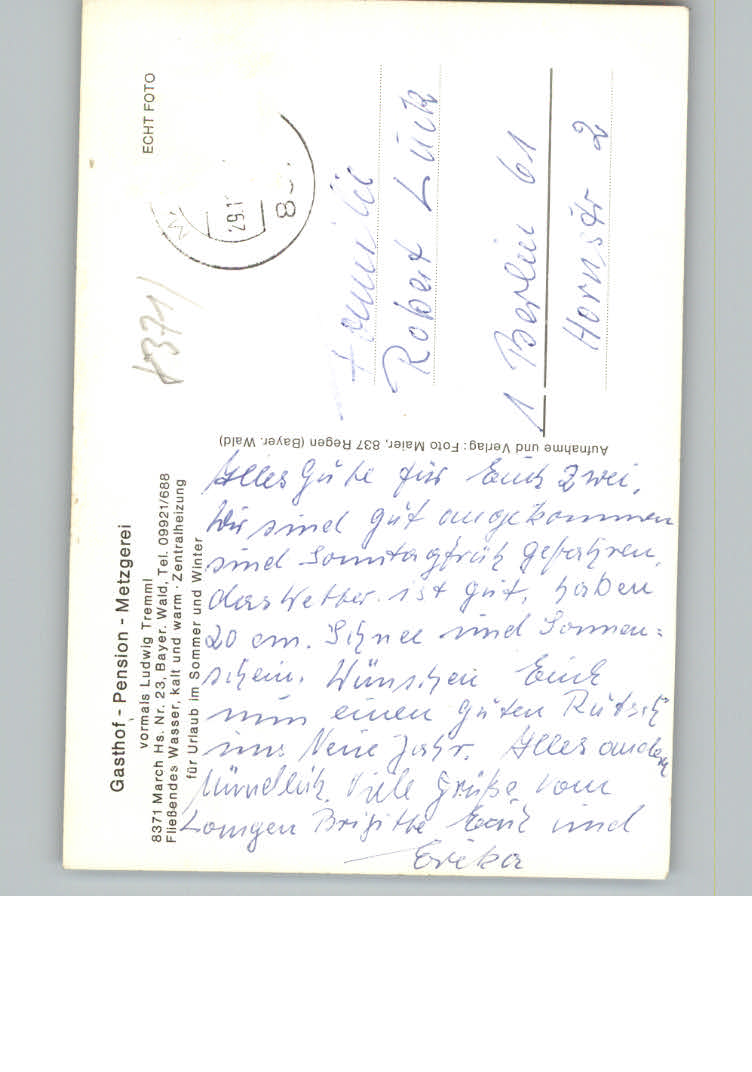 Gasthof - Pension - Metzgerei
vormals Ludwig Tremml
8371 March Hs. Nr. 23, Bayer. Wald, Tel. 09921/688
Fließendes Wasser, kalt und warm · Zentralheizung
für Urlaub im Sommer und Winter
Alles Gute für Euch Zwei,
Wir sind gut angekommen
sind Sonntagfrüh gefahren,
das Wetter ist gut, haben
20 cm. Schnee und Sonnen=
schein. Wünschen Euch
nun einen guten Rutsch
ins Neue Jahr. Alles andere
Mündlich. Viele Grüße vom
Brigitte und
Erika
Aufnahme und Verlag: Foto Maier, 837 Regen (Bayer. Wald)
ECHT FOTO
8371
29.1
8
Familie
Robert Lück
1 Berlin 61
Hornstr 2